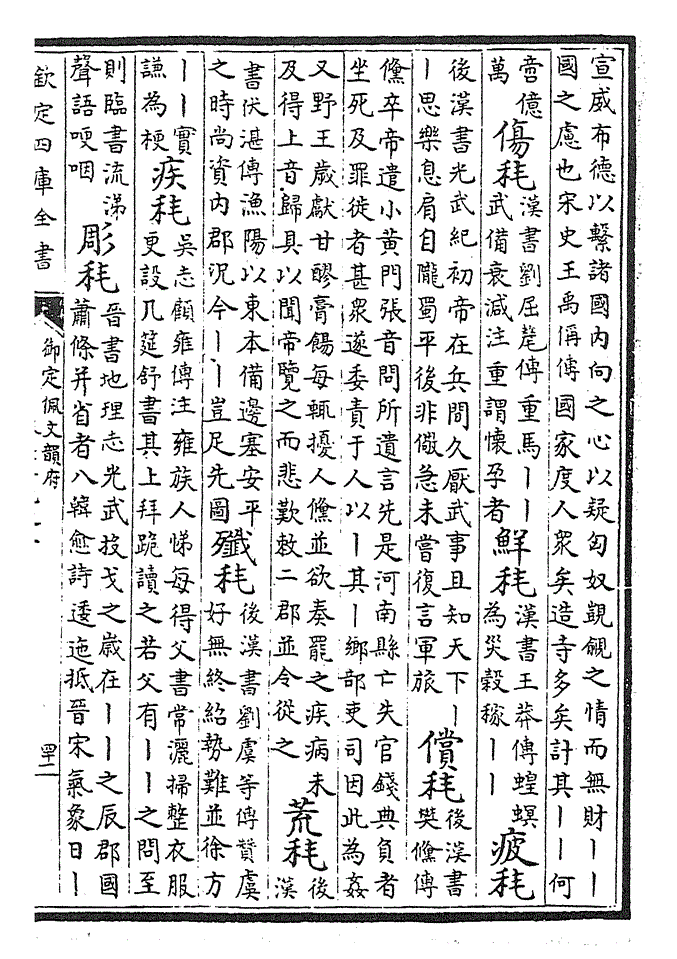 宣威布德以繫諸國内向之心以疑匈奴覬覦之情而無財丨丨
國之慮也宋史王禹偁傳國家度人衆矣造寺多矣計其丨丨何
啻億
萬
傷秏
漢書劉屈氂傳重馬丨丨
武備衰減注重謂懷孕者
鮮秏
漢書王莽傳蝗螟
為災穀稼丨丨
疲秏
後漢書光武紀初帝在兵間久厭武事且知天下丨
丨思樂息肩自隴蜀平後非儆急未嘗復言軍旅
償秏
後漢書
樊儵傳
儵卒帝遣小黄門張音問所遺言先是河南縣亡失官錢典負者
坐死及罪徙者甚衆遂委責于人以丨其丨鄉部吏司因此為姦
又野王歲獻甘醪膏餳每輒擾人儵並欲奏罷之疾病未
及得上音歸具以聞帝覽之而悲歎敕二郡並令從之
荒秏
後
漢
書伏湛傳漁陽以東本備邊塞安平
之時尚資内郡況今丨丨豈足先圖
殲秏
後漢書劉虞等傳贊虞
好無終紹勢難並徐方
丨丨實
謙為梗
疾秏
吳志顧雍傳注雍族人悌每得父書常灑掃整衣服
更設几筵舒書其上拜跪讀之若父有丨丨之問至
則臨書流涕
聲語哽咽
彫秏
晉書地理志光武投戈之歲在丨丨之辰郡國
蕭條并省者八韓愈詩逶迤抵晉宋氣象日丨
欽定四庫全書
御定佩文韻府